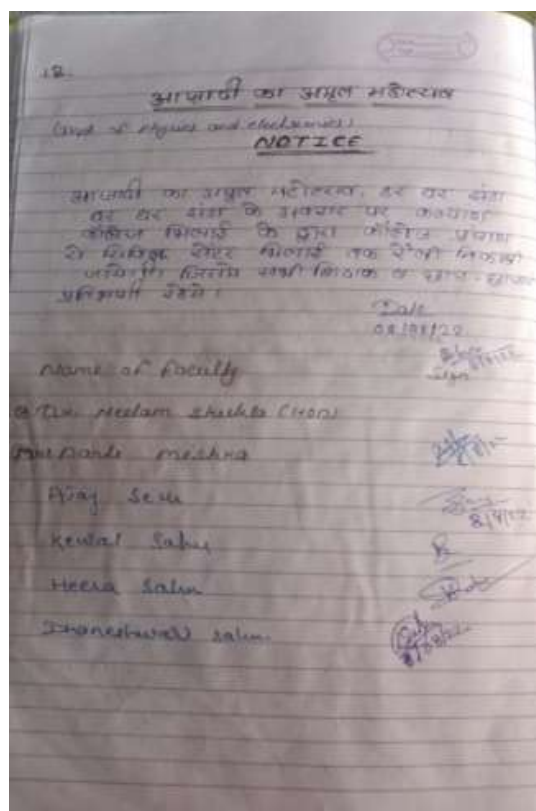 12.
आजादी का अमृत महोत्सव
(Dept of physics and electronics)
NOTICE
आजादी का अमृत महोत्सव, हर घर झंडा
घर घर झंडा के अवसर पर कल्याण
कॉलेज भिलाई के द्वारा कॉलेज
से सिविक सेंटर भिलाई तक रैली निकाली
जायेगी जिसमें सभी शिक्षक व छात्र-छात्राएं
रहेंगे।
Date
08/08/22
Name of faculty
Sign
Dr. Neelam Shukla (HOD)
Mishra
Ajay
8/8/22
Kewal Sahu
Heera Sahu
Dhaneshwari Sahu.
8/08/22